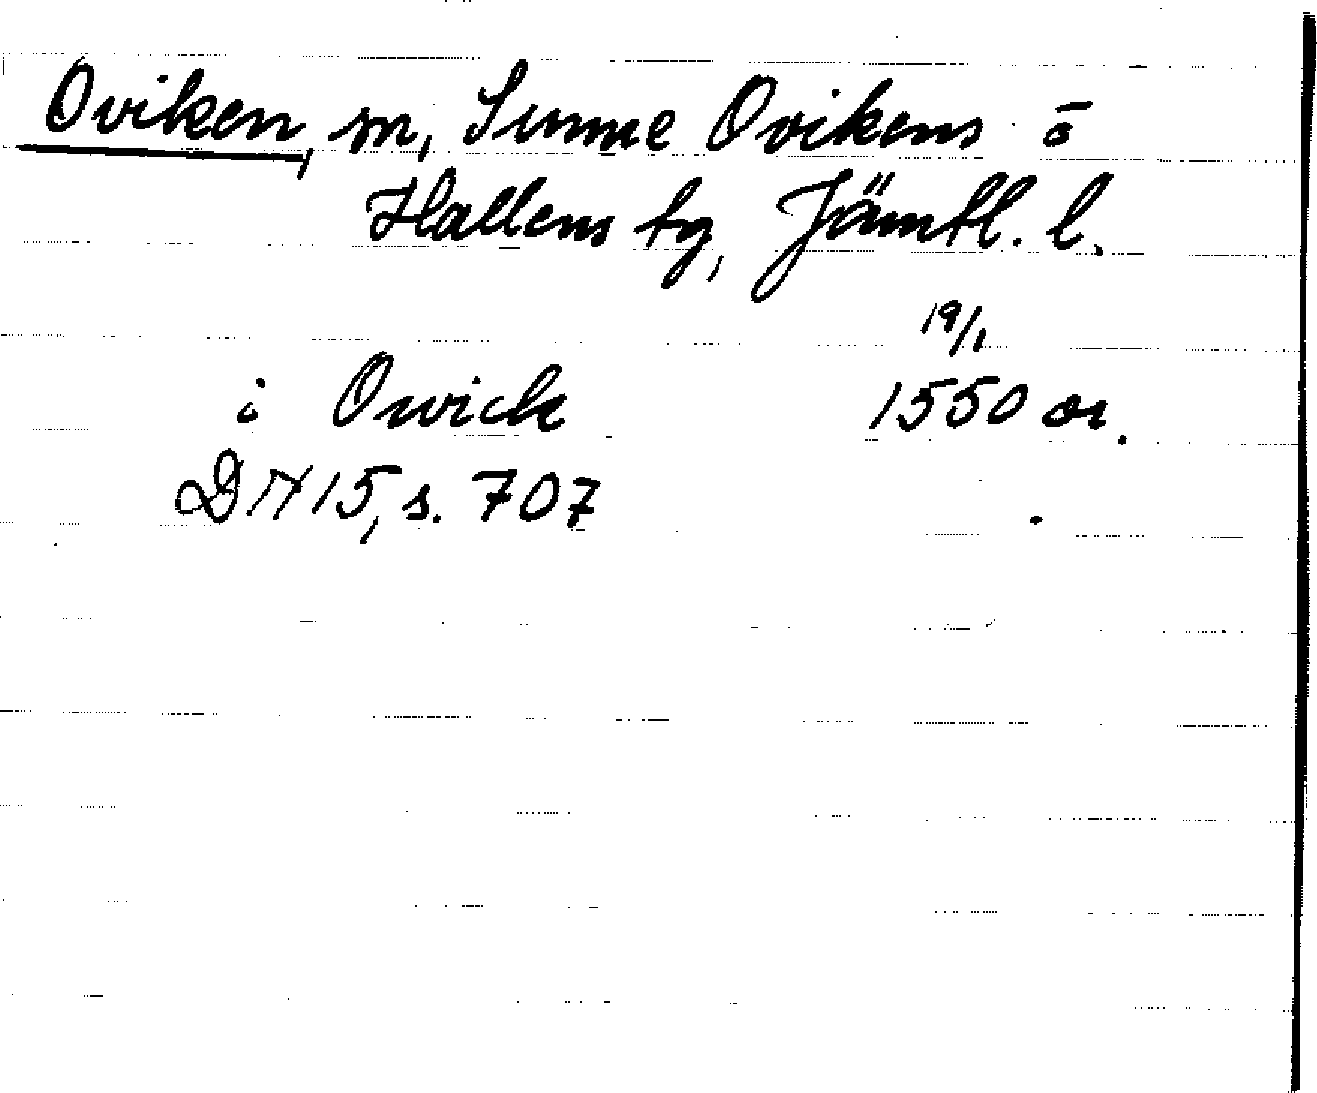 Oviken, sn, Sunne Ovikens o
Hallens tg, Jämtl. l.
19/1
i Owick 1550 or.
DN 15, s. 707